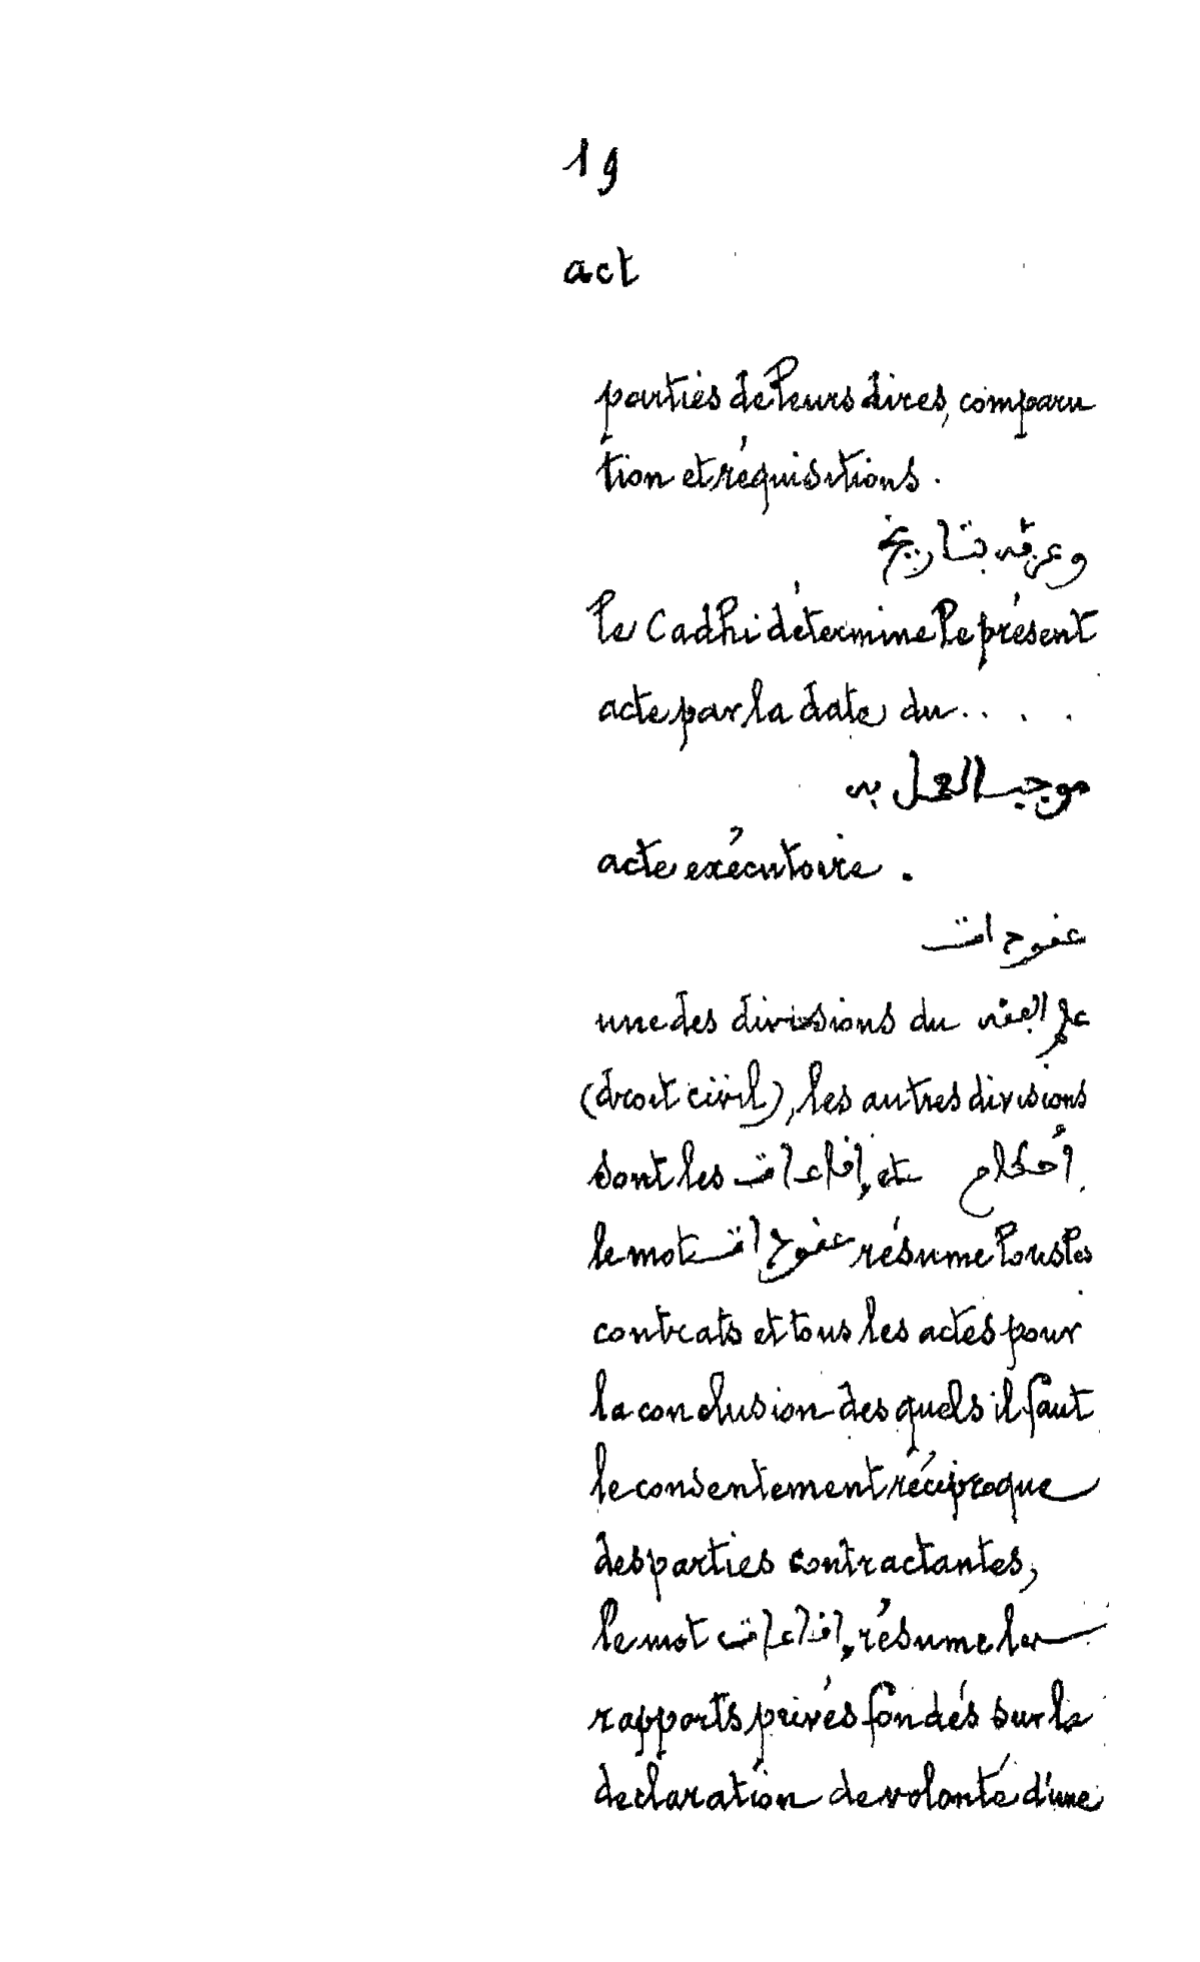 19
act
parties de leurs dires, comparu
tion et réquisitions.
وعرفه بتاريخ
le Cadhi détermine le présent
acte par la date du....
موجب العمل به
acte exécutoire.
عقودات
une des divisions du علم الفقه
(droit civil), les autres divisions
sont les إقاعات et أحكام.
le mot عقودات résume tous les
contrats et tous les actes pour
la conclusion des quels il faut
le consentement réciproque
des parties contractantes,
le mot إقاعات résume les
rapports privés fondés sur la
declaration de volonté d'une